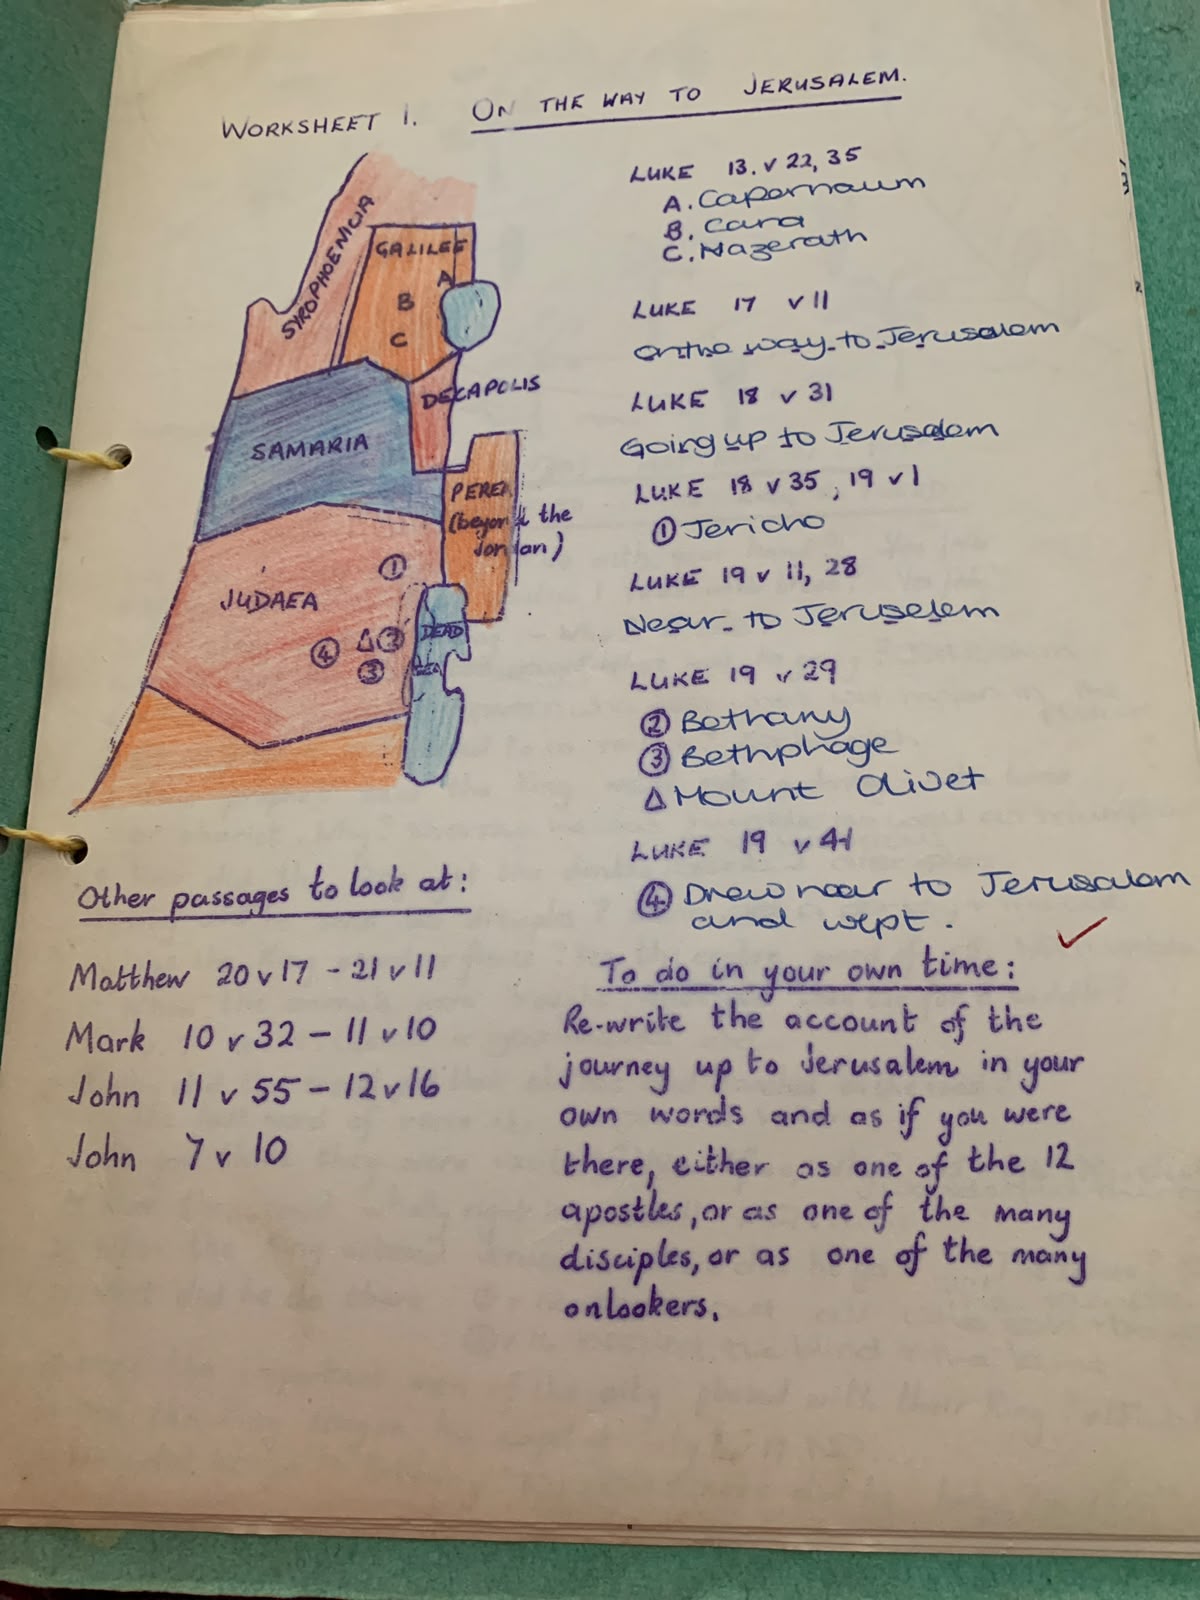 WORKSHEET 1. ON THE WAY TO JERUSALEM.
SYROPHOENICIA
GALILEE
A
B
C
DECAPOLIS
SAMARIA
PEREA
(beyond the
Jordan)
JUDAEA
①
④ △ ②
③
DEAD
SEA
LUKE 13. v 22, 35
A. Capernaum
B. Cana
C. Nazerath
LUKE 17 v 11
on the way to Jerusalem
LUKE 18 v 31
Going up to Jerusalem
LUKE 18 v 35, 19 v 1
① Jericho
LUKE 19 v 11, 28
Near to Jeruselem
LUKE 19 v 29
② Bethany
③ Bethphage
△ Mount Olivet
LUKE 19 v 41
④ Drew near to Jerusalem
and wept.
Other passages to look at:
Matthew 20 v 17 - 21 v 11
Mark 10 v 32 - 11 v 10
John 11 v 55 - 12 v 16
John 7 v 10
To do in your own time:
Re-write the account of the
journey up to Jerusalem in your
own words and as if you were
there, either as one of the 12
apostles, or as one of the many
disciples, or as one of the many
onlookers.